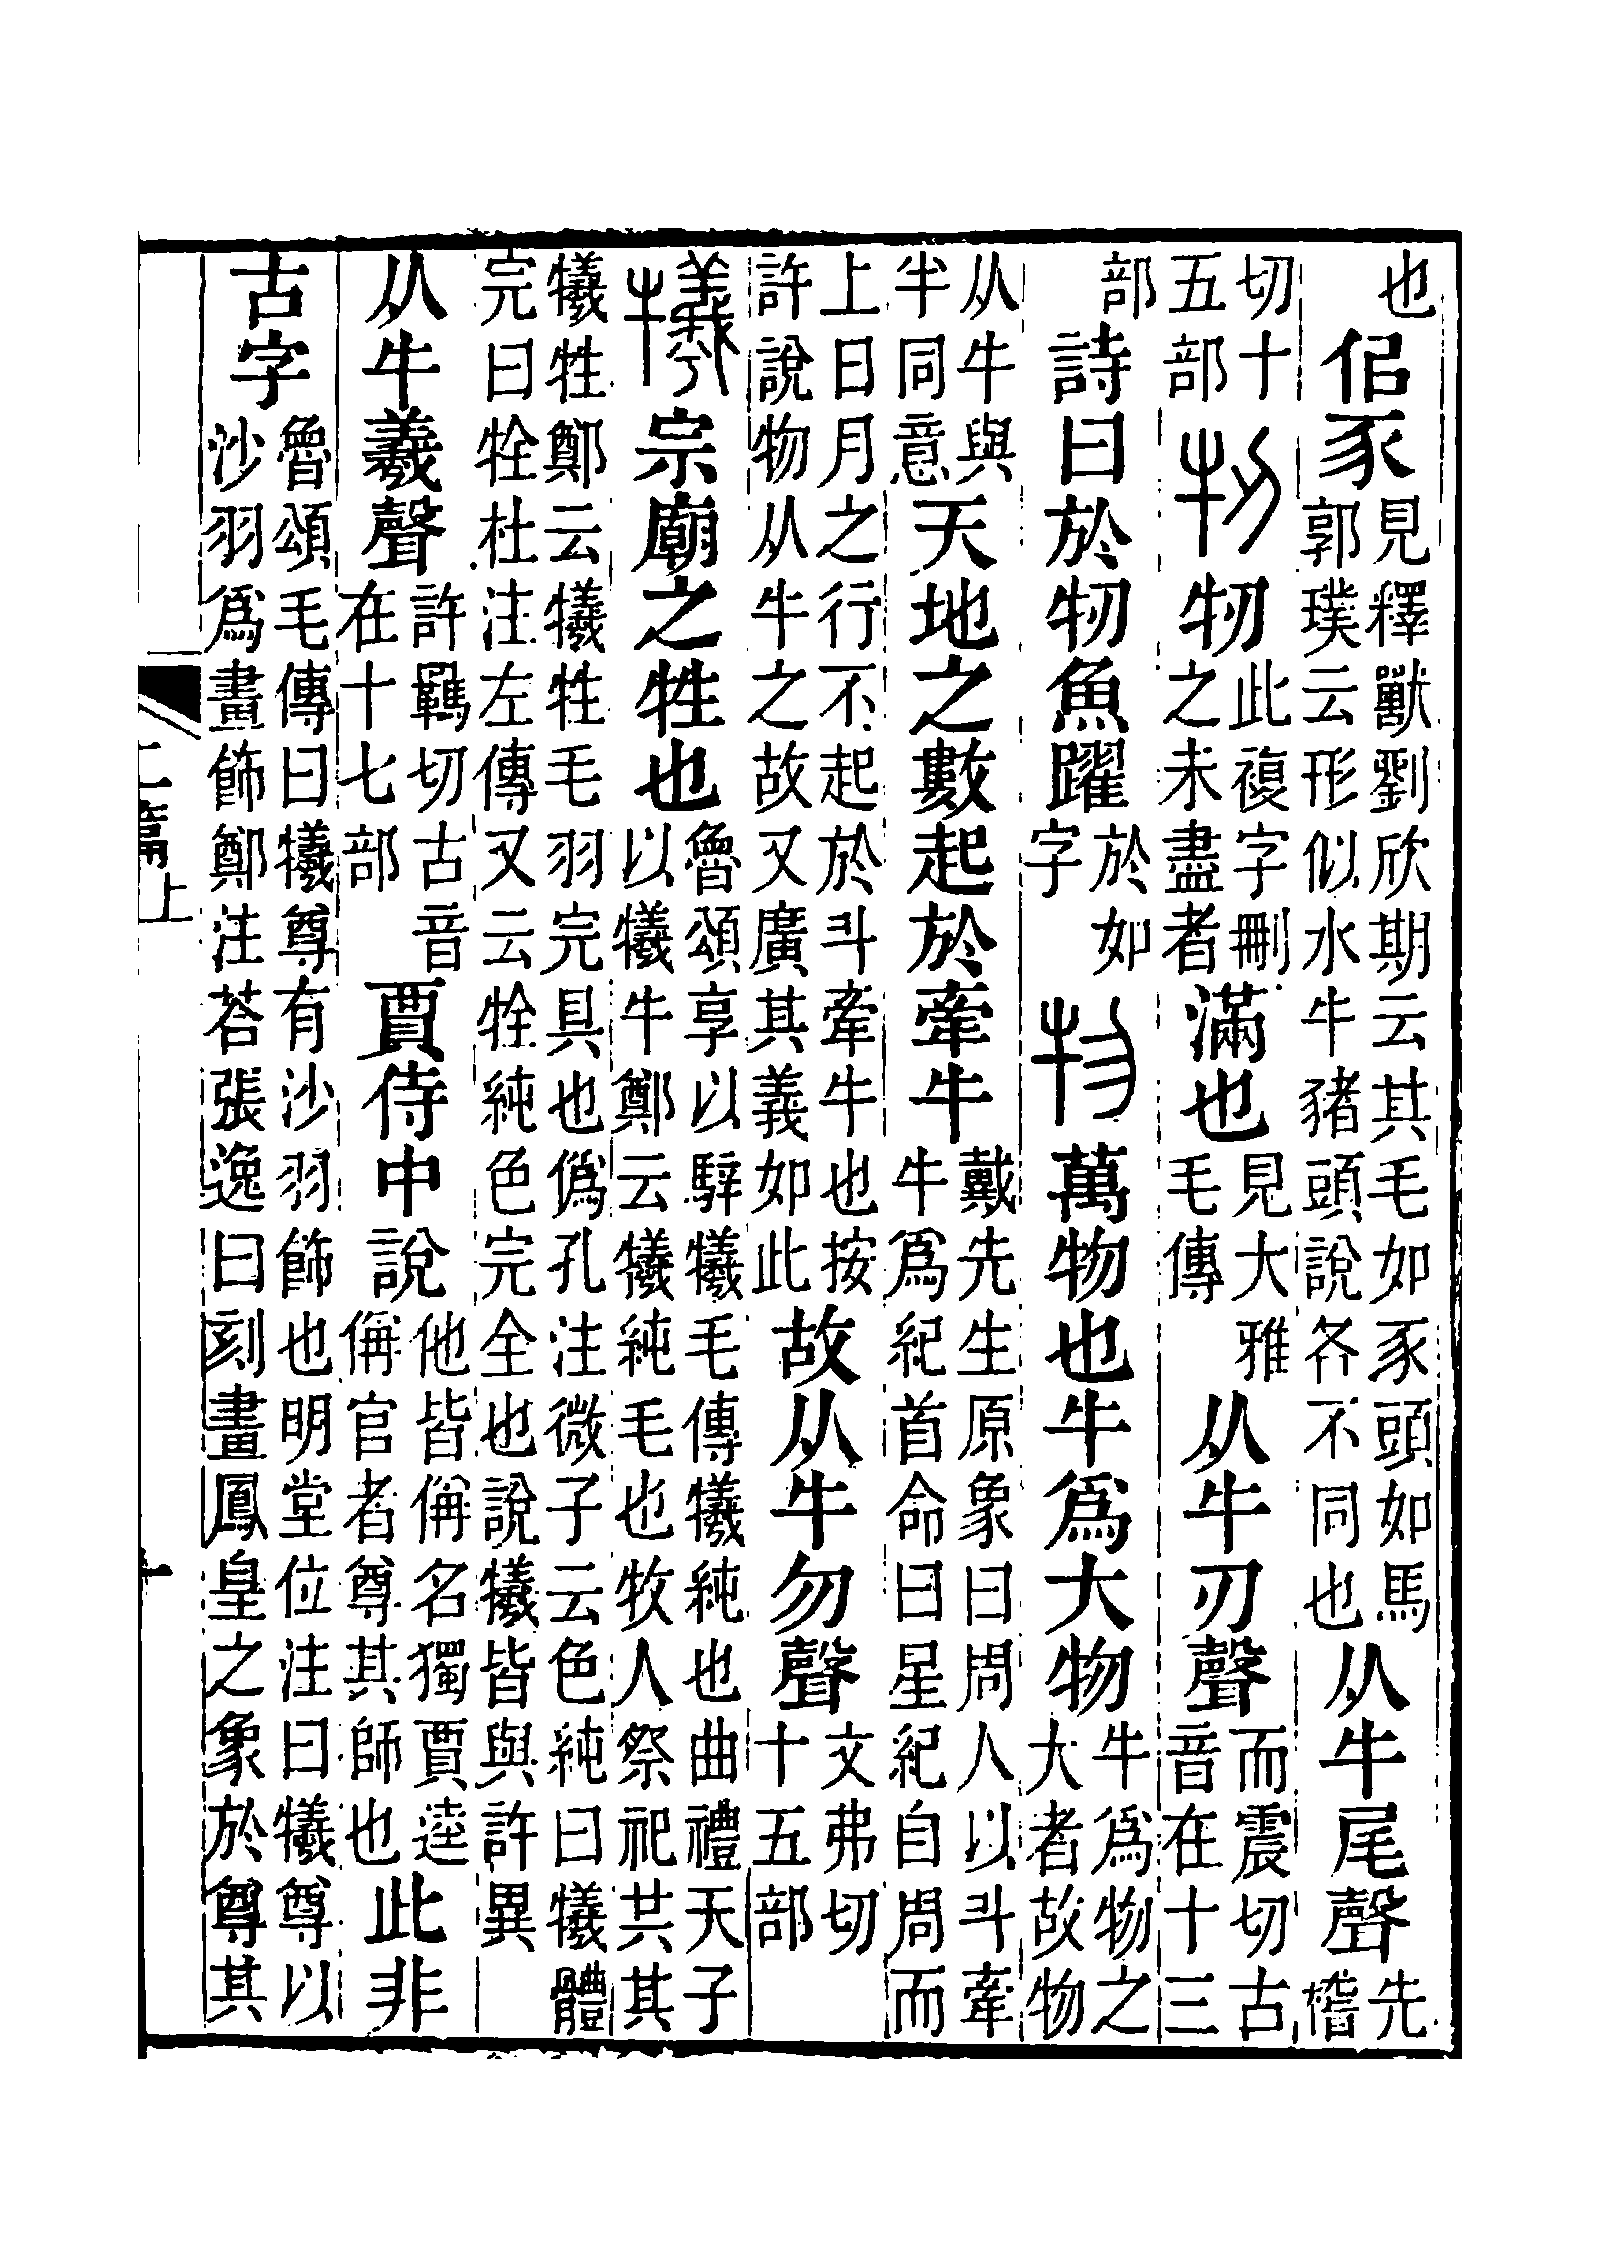 也佀豕見釋獸劉欣期云其毛如豕頭如馬郭璞云形似水牛豬頭說各不同也从牛尾聲先稽
切十五部牣牣此複字刪之未盡者滿也見大雅毛傳从牛刃聲而震切古音在十三
部詩曰於牣魚躍於如字物萬物也牛爲大物牛爲物之大者故物
从牛與半同意天地之數起於牽牛戴先生原象曰周人以斗牽牛爲紀首命曰星紀自周而
上日月之行不起於斗牽牛也按許說物从牛之故又廣其義如此故从牛勿聲文弗切十五部
犧宗廟之牲也魯頌享以騂犧毛傳犧純也曲禮天子以犧牛鄭云犧純毛也牧人祭祀共其
犧牲鄭云犧牲毛羽完具也僞孔注微子云色純曰犧體完曰牷杜注左傳又云牷純色完全也說犧皆與許異
从牛羲聲許羈切古音在十七部賈侍中說他皆偁名獨賈逵偁官者尊其師也此非
古字魯頌毛傳曰犧尊有沙羽飾也明堂位注曰犧尊以沙羽爲畫飾鄭注荅張逸曰刻畫鳳皇之象於尊其
二篇上
十